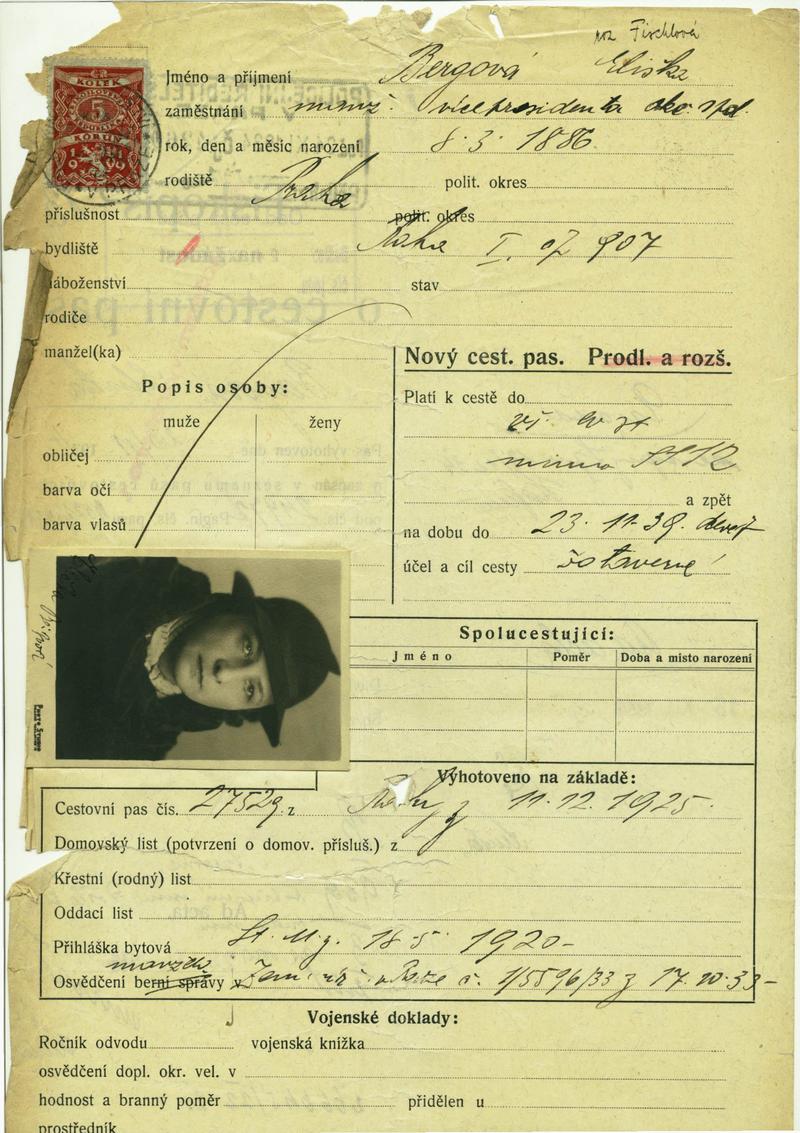 roz Fischlová
KOLEK
5
KORUN
Jméno a příjmení Bergová Eliska
zaměstnání manž. vícepresidenta
rok, den a měsíc narození 8. 3. 1886.
rodiště Praha polit. okres
příslušnost polit. okres
bydliště Praha I. 907
náboženství stav
rodiče
manžel(ka)
Popis osoby:
muže ženy
obličej
barva očí
barva vlasů
Nový cest. pas. Prodl. a rozš.
Platí k cestě do
mimo
a zpět
na dobu do 23. 11. 38.
účel a cíl cesty
Spolucestující:
Jméno Poměr Doba a místo narození
Vyhotoveno na základě:
Cestovní pas čís. 27529 z Prahy z 11. 12. 1925.
Domovský list (potvrzení o domov. přísluš.) z
Křestní (rodný) list
Oddací list
Přihláška bytová 18 5 1920
Osvědčení berní správy v Zem. úř. v Praze č. 1/5596/33 z 17. 10. 33
Vojenské doklady:
Ročník odvodu vojenská knížka
osvědčení dopl. okr. vel. v
hodnost a branný poměr přidělen u
prostředník